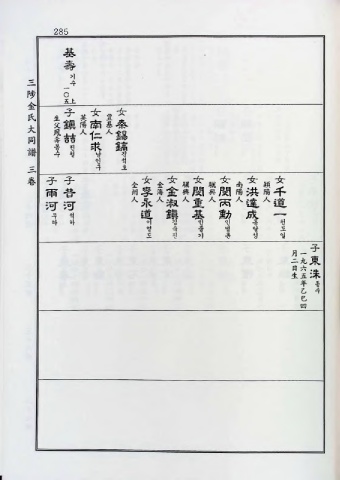 285
三陟金氏大同譜 三卷
基壽 기수
一〇五上
子鎭喆 진철
生父冕壽 면수
女南仁求 남인구
英陽人
女秦錫鎬 진석호
豊基人
子吾河
子雨河 우하
女李永道 이영도
全州人
女金淑鎭 김숙진
金海人
女閔重基 민중기
驪興人
女閔丙勳 민병훈
驪興人
女洪達成 홍달성
南陽人
女千道一 천도일
潁陽人
子東洙 동수
一九六五年乙巳四
月二日生